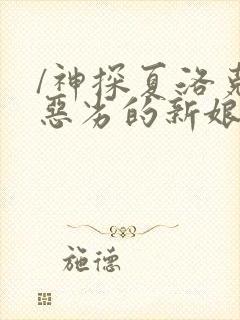 /神探夏洛克
惡劣的新娘
施德